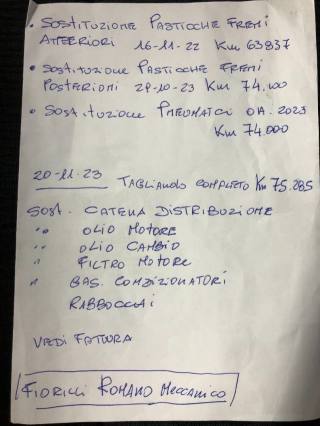 • SOSTITUZIONE PASTICCHE FRENI
ANTERIORI 16-11-22 KM 63837
• SOSTITUZIONE PASTICCHE FRENI
POSTERIORI 28-10-23 KM 74.100
• SOSTITUZIONE PNEUMATICI 04.2023
KM 74.000
20-11-23 TAGLIANDO COMPLETO KM 75.285
SOST. CATENA DISTRIBUZIONE
" OLIO MOTORE
" OLIO CAMBIO
" FILTRO MOTORE
" GAS. CONDIZIONATORI
RABBOCCHI
VEDI FATTURA
FIORILLI ROMANO MECCANICO